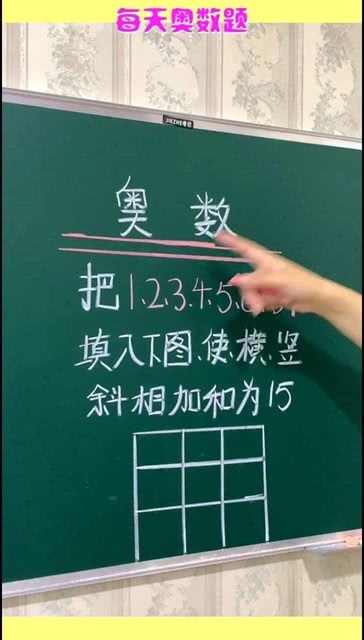 每天奥数题
奥 数
把1、2、3、4、5、
填入下图、使、横、竖
斜相加和为15